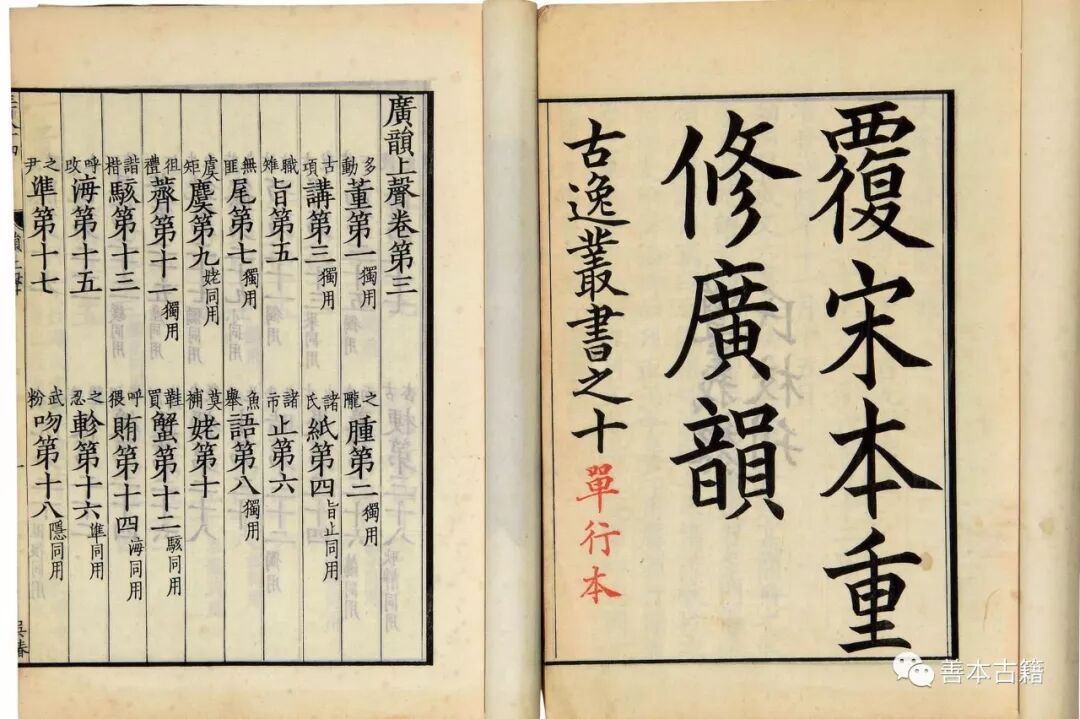 覆宋本重
修廣韻
古逸叢書之十單行本
廣韻上聲卷第三
多動董第一獨用 之隴腫第二獨用
古項講第三獨用 諸氏紙第四旨止同用
職雉旨第五 諸市止第六
無匪尾第七獨用 魚舉語第八獨用
虞矩麌第九姥同用 莫補姥第十
徂禮薺第十一獨用 鞵買蟹第十二駭同用
諧楷駭第十三 呼猥賄第十四海同用
呼改海第十五 之忍軫第十六準同用
之尹準第十七 武粉吻第十八隱同用
善本古籍